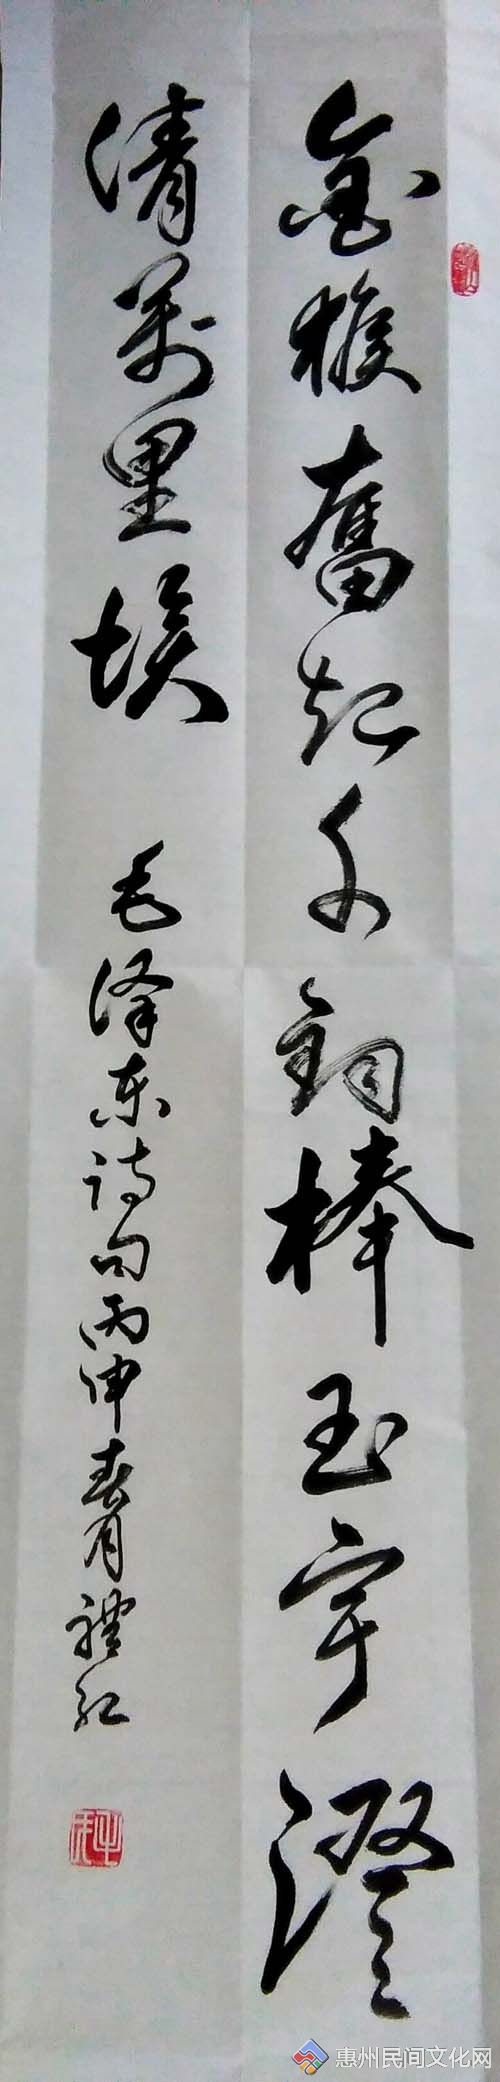 金猴奮起千鈞棒玉宇澄
清萬里埃
毛泽东诗句丙申春月禮红
惠州民间文化网